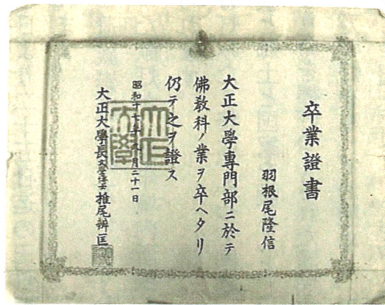 卒業證書
羽根尾隆信
大正大學專門部ニ於テ
佛教科ノ業ヲ卒ヘタリ
仍テ之ヲ證ス
昭和十七年九月二十一日
大正大學長文學博士椎尾辨匡
大正大學